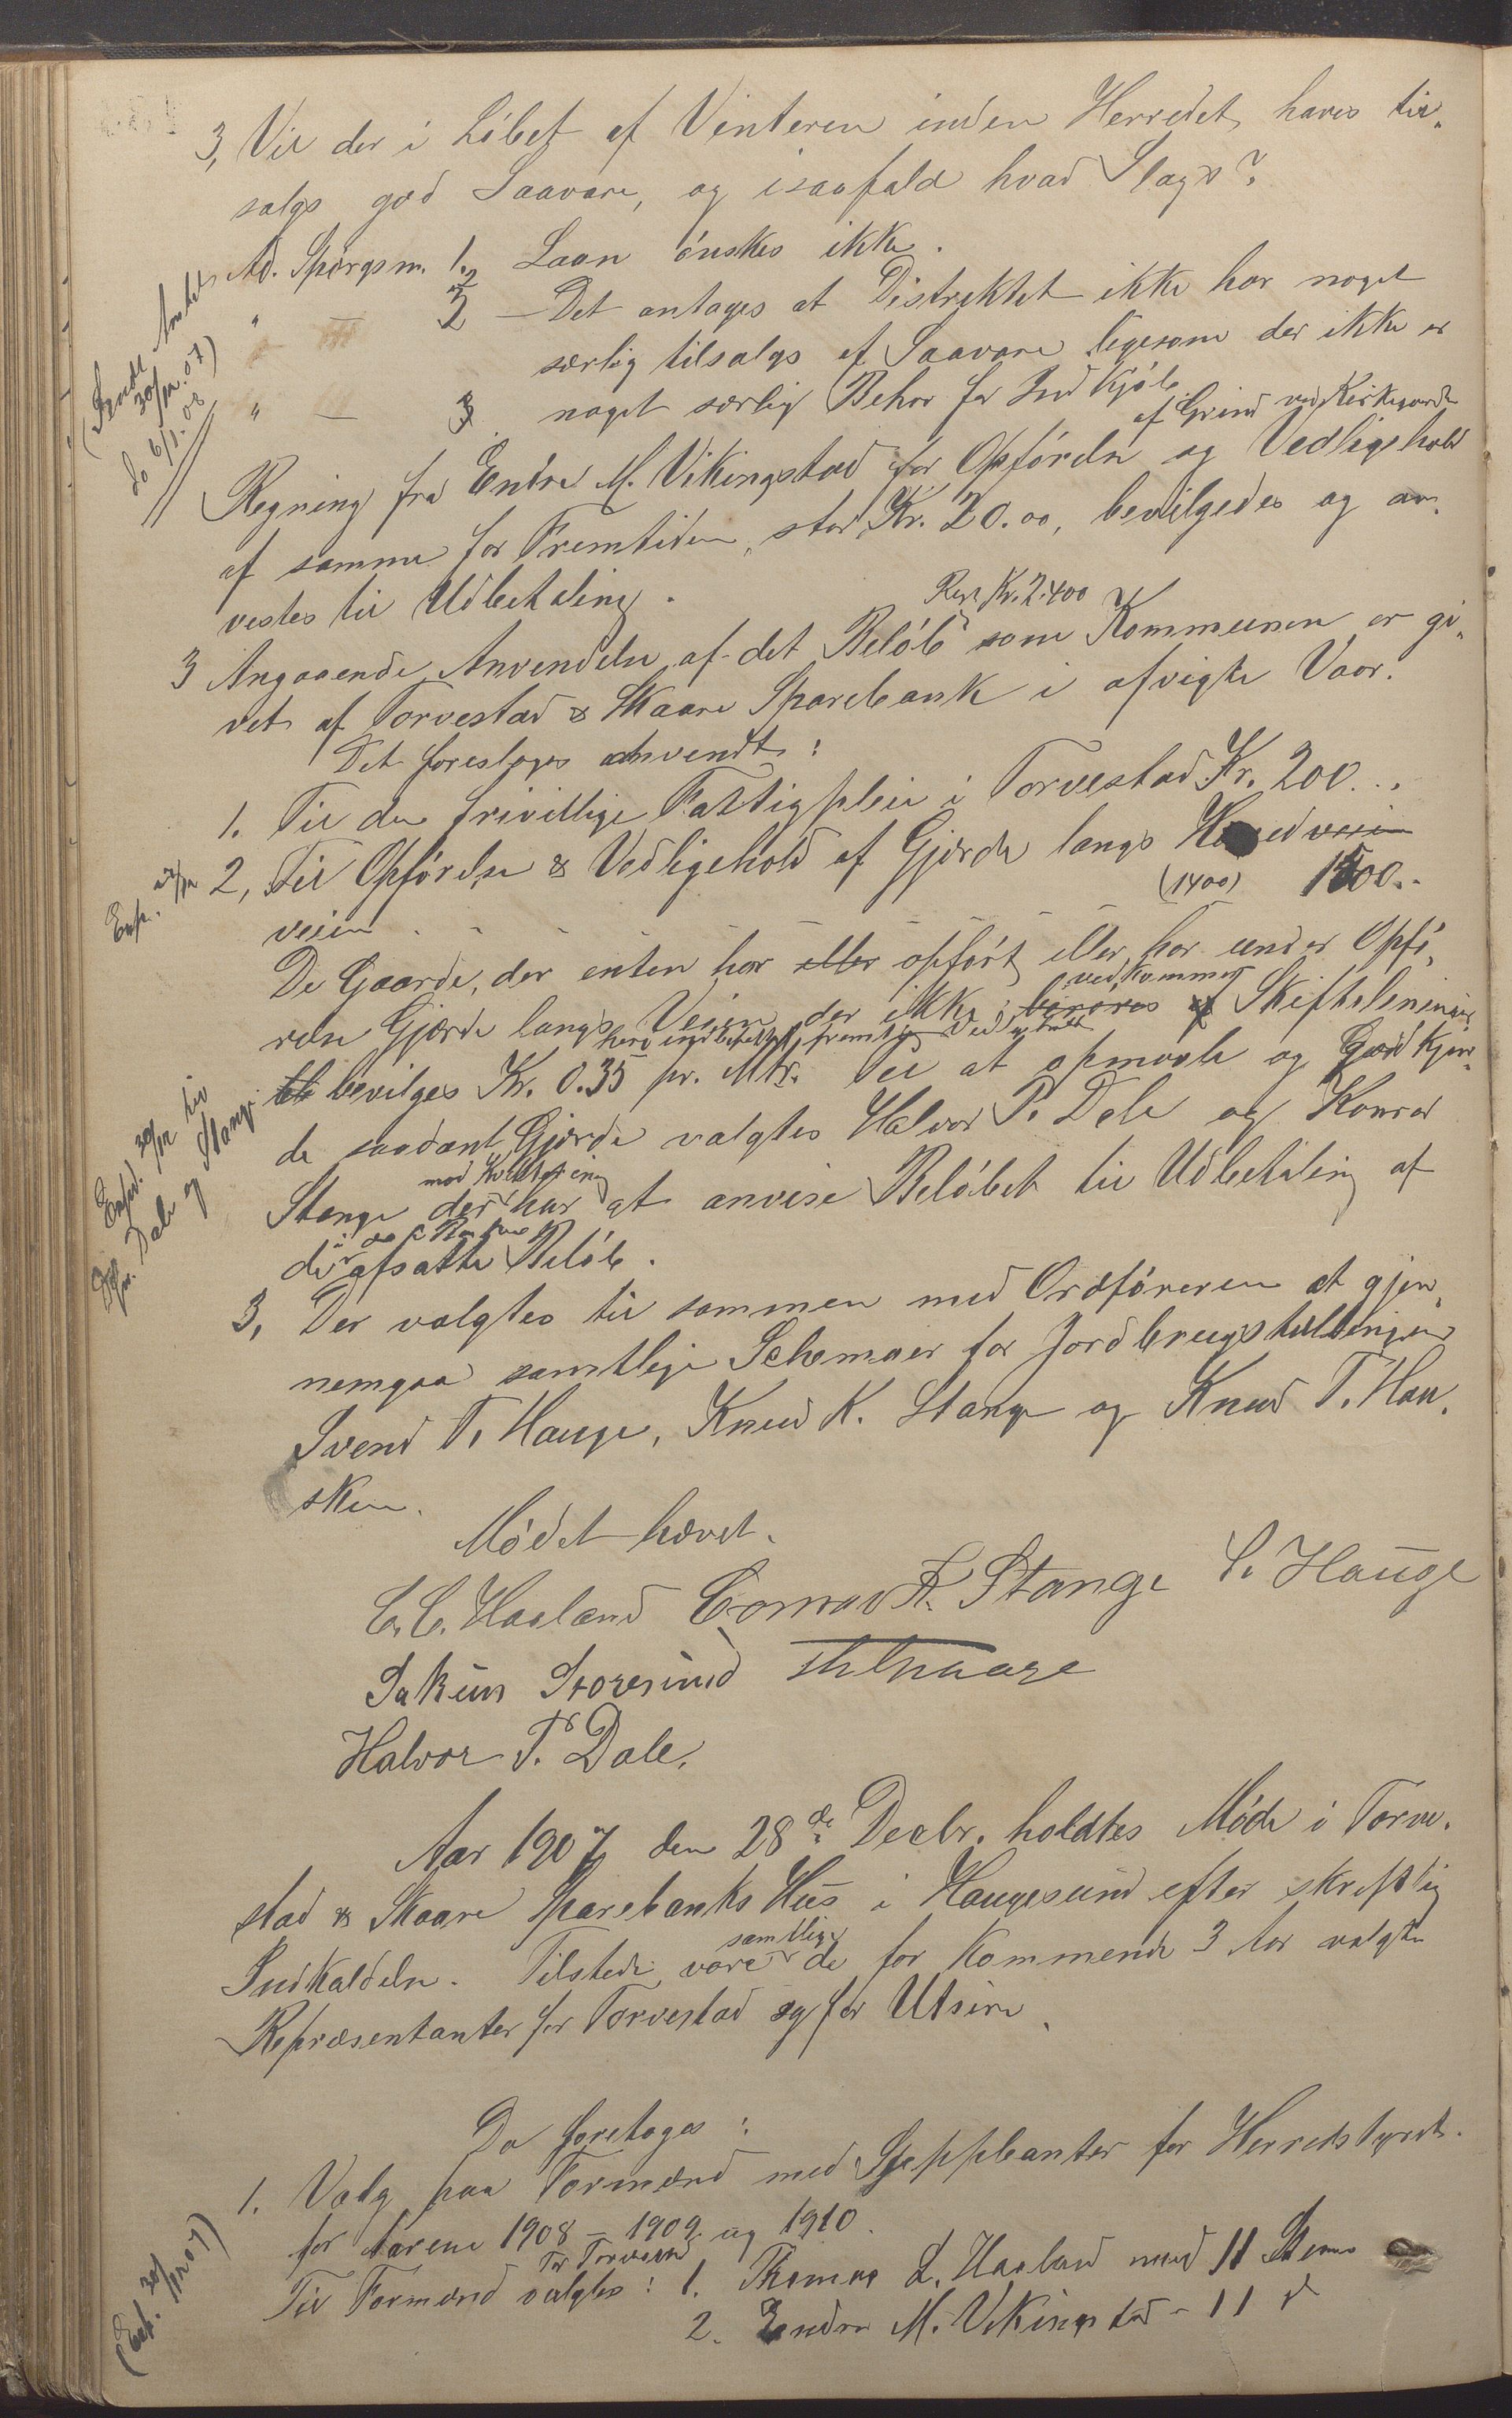 3, Vil der i Løbet af Vinteren inden Herredet haves til„
salgs god Saavare, og isaafald hvad Slags?
Ad. Spørgsm. 1. Laan ønskes ikke.
" — 2 — Det antages at Distriktet ikke har noget
særlig tilsalgs af Saavare ligesom der ikke er
" — 3 noget særlig Behov for Indkjøb
(Sendt Amtet 30/12.07)
do 6/1.08
af Grind ved Kirkegaarden
Regning fra Endre M. Vikingstad for Opførelse og Vedligehold
af samme for Fremtiden, stor Kr. 20.00, bevilgedes og an„
vestes til Udbetaling.
Rest Kr. 2.400
3 Angaaende Anvendelse af det Beløb som Kommunen er gi„
vet af Torvestad & Skaare Sparebank i afvigte Vaar.
Det foresloges anvendt:
1. Til den frivillige Fattigpleie i Torvestad Kr. 200...
2, Til Opførelse & Vedligehold af Gjærde langs Hovedveien
Exp.
veien - - - - - (1400) 1500..
De Gaarde, der enten har eller opført eller har under Opfø„
relse Gjærde langs Veien der ikke berøres ved kommet af Skifteleninger
bevilges Kr. 0.35 pr. Mtr. Til at opmaale og Godkjen„
de saadant Gjærde valgtes Halvor P. Dale og Konrad
Exped. 30/12 til
Dale og Stange
mod Kvittering
Stange der har at anvise Beløbet til Udbetaling af
de i Banken
afsatte Beløb.
3, Der valgtes til sammen med Ordføreren at gjen„
nemgaa samtlige Schemaer for Jordbrugstellingen
Svend T. Hauge, Knud K. Stange og Knud T. Hau„
sken.
Mødet hævet.
C. C. Haaland Conrad K. Stange S. Hauge
Jakûb Storesund
Halvor P. Dale.
Aar 1907 den 28de Decbr. holdtes Møde i Torve„
stad & Skaare Sparebanks Hus i Haugesund efter skriftlig
samtlige
Indkaldelse. Tilstede vare de for kommende 3 Aar valgte
Repræsentanter for Torvestad og for Utsire.
Da foretoges:
1. Valg paa Formænd med Suppleanter for Herredstyret
for Aarene 1908 – 1909 og 1910.
(Exp. 30/12 07)
For Torvestad
Til Formænd valgtes: 1. Thomas L. Haaland med 11 Stemmer
2. Endre M. Vikingstad – 11 "